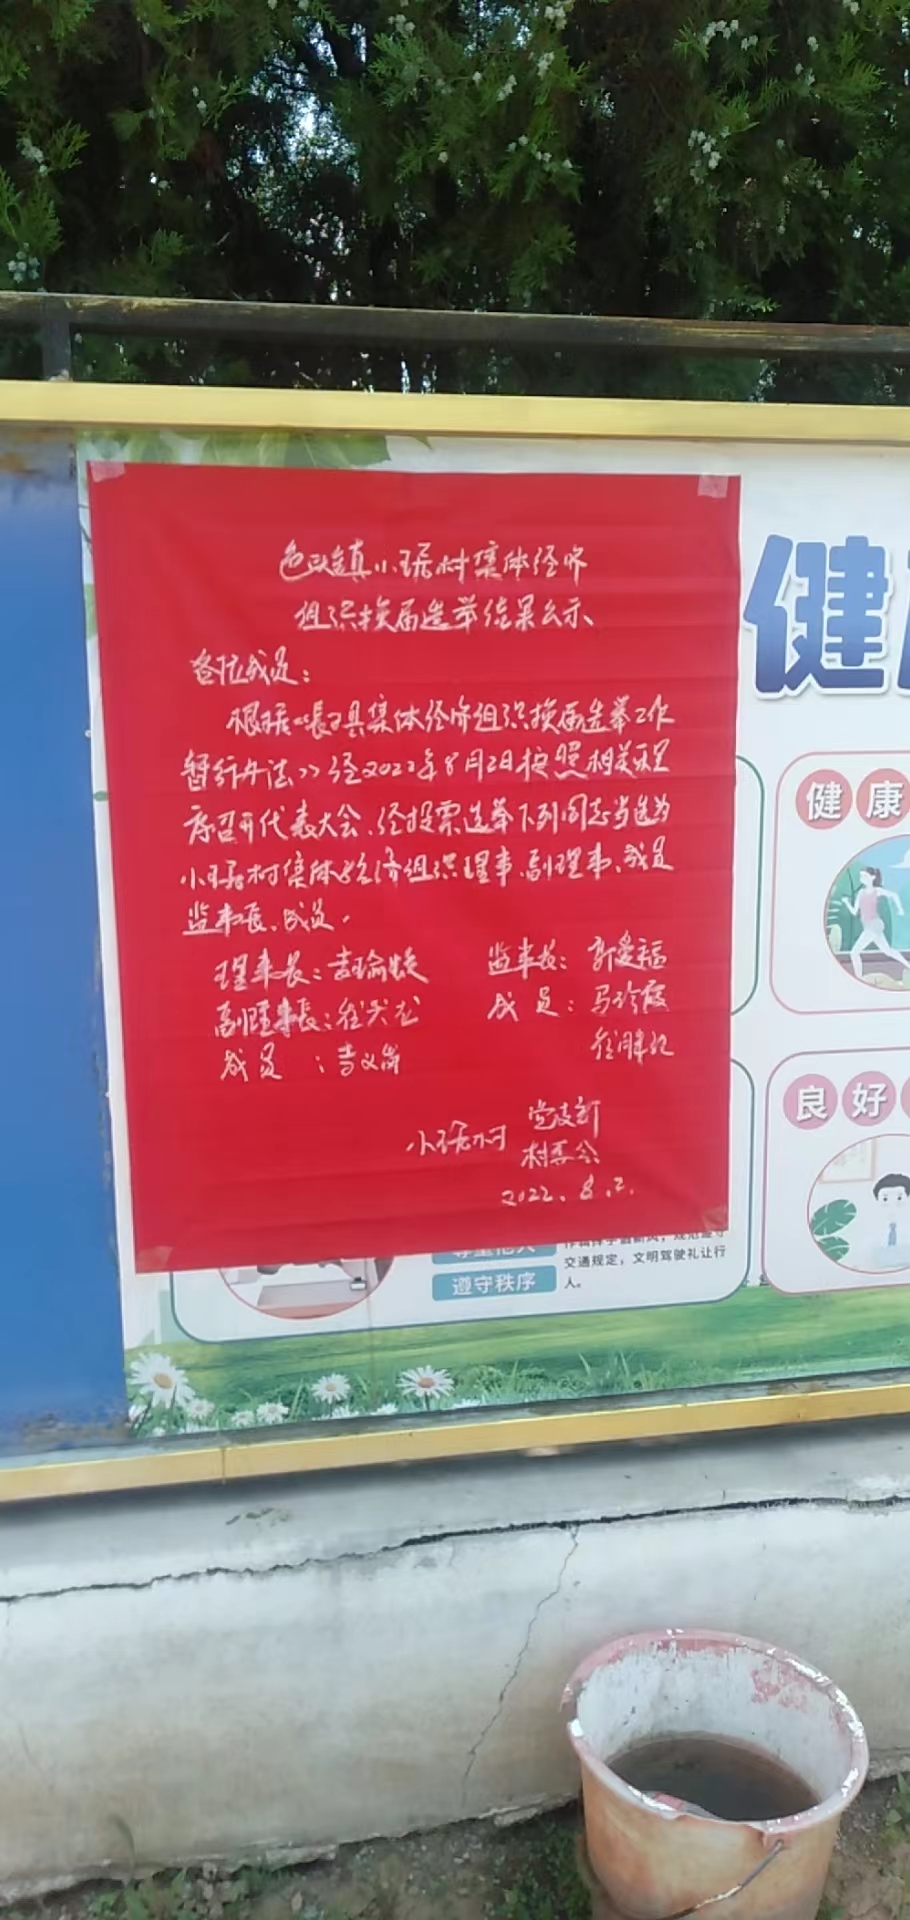 小琚村集体经济
组织换届选举结果公示
各位成员：
根据 县集体经济组织换届选举工作
暂行办法>>经2022年8月2日按照相关程
序召开代表大会、经投票选举下列同志当选为
小琚村集体经济组织理事、副理事、成员
监事长、成员.
理事长： 监事长：
副理事长： 成员：马珍霞
成员：
小琚村 党支部
村委会
2022.8.2.
健
健康
良好
交通规定，文明驾驶礼让行
人。
遵守秩序